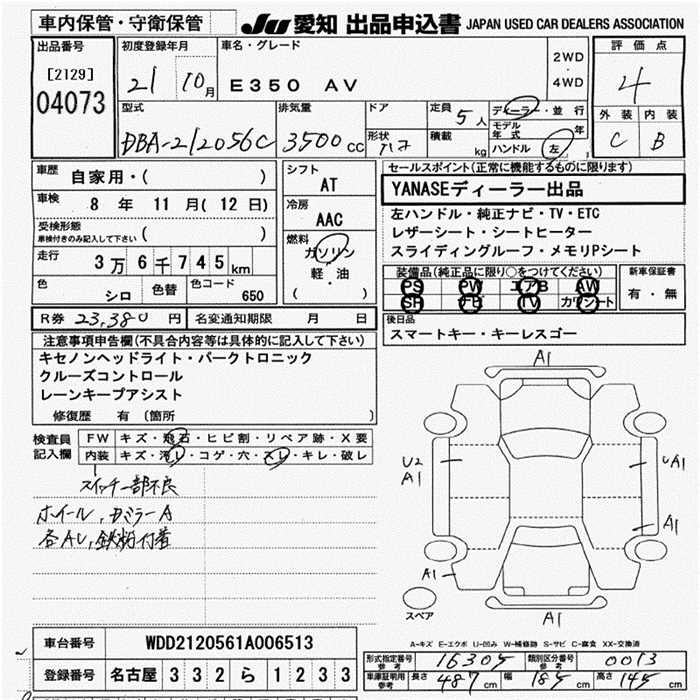 車内保管・守衛保管
JU 愛知 出品申込書 JAPAN USED CAR DEALERS ASSOCIATION
出品番号
[2129]
04073
初度登録年月
21 10月
車名・グレード
E350 AV
2WD
・
4WD
評価点
4
外装 内装
C B
型式
DBA-212056C
排気量
3500 cc
ドア
形状
定員 5人
積載 kg
ディーラー・並行
モデル年式 年
ハンドル 左
車歴 自家用・( )
車検 8年 11月(12日)
受検形態
車検付きのみ記入して下さい ( )
走行 3万6千745km
色 シロ
色替
色コード 650
シフト
AT
冷房
AAC
燃料
ガソリン
軽・油
( )
セールスポイント(正常に機能するものに限ります)
YANASEディーラー出品
左ハンドル・純正ナビ・TV・ETC
レザーシート・シートヒーター
スライディングルーフ・メモリPシート
装備品(純正品に限り○をつけてください)
PS PW エアB AW
SR ナビ TV カワシート
新車保証書
有・無
R券 23,380 円
名変通知期限 月 日
後日品
スマートキー・キーレスゴー
注意事項申告欄(不具合内容等は具体的に記入して下さい)
キセノンヘッドライト・パークトロニック
クルーズコントロール
レーンキープアシスト
修復歴 有 〔箇所 〕
検査員記入欄
FW キズ・飛石・ヒビ割・リペア跡・X要
内装 キズ・汚レ・コゲ・穴・スレ・キレ・破レ
スイッチ一部不良
ホイール,ドミラーA
各AU,鉄粉付着
A1
U2
A1
UA1
A1
A1
A1
スペア
A-キズ E-エクボ U-凹み W-補修跡 S-サビ C-腐食 XX-交換済
車台番号 WDD2120561A006513
登録番号 名古屋 332 ら 1233
形式指定番号 参考 16305
類別区分番号 参考 0013
車庫証明用参考 長さ 487cm 幅 185cm 高さ 145cm